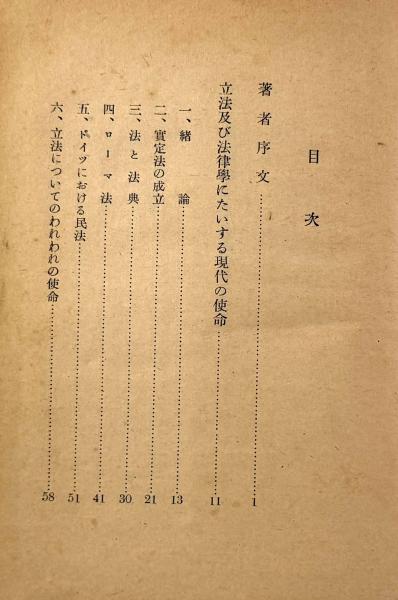 目次
著者序文……………………1
立法及び法律學にたいする現代の使命……………………11
一、緒論……………………13
二、實定法の成立……………………21
三、法と法典……………………30
四、ローマ法……………………41
五、ドイツにおける民法……………………51
六、立法についてのわれわれの使命……………………58